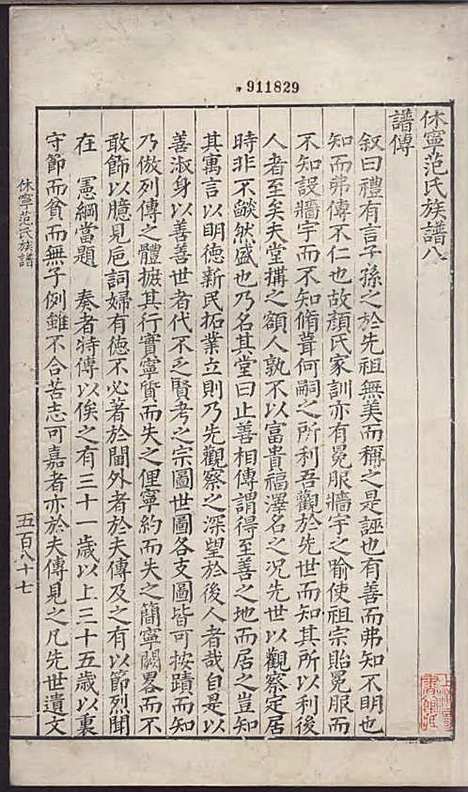 911829
休寧范氏族譜八
譜傳
叙曰禮有言子孫之於先祖無美而稱之是誣也有善而弗知不明也
知而弗傳不仁也故顏氏家訓亦有冕服牆宇之喻使祖宗貽冕服而
不知設牆宇而不知脩葺何嗣之所利吾觀於先世而知其所以利後
人者至矣夫堂搆之額人孰不以富貴福澤名之况先世以觀察定居
時非不燄然盛也乃名其堂曰止善相傳謂得至善之地而居之豈知
其寓言以明德新民拓業立則乃先觀察之深望於後人者哉自是以
善淑身以善善世者代不乏賢考之宗圖世圖各支圖皆可按蹟而知
乃倣列傳之體摭其行實寧質而失之俚寧約而失之簡寧闕畧而不
敢飾以臆見巵詞婦有德不必著於閫外者於夫傳及之有以節烈聞
在 憲綱當題 奏者特傳以俟之有三十一歲以上三十五歲以裏
守節而貧而無子例雖不合苦志可嘉者亦於夫傳見之凡先世遺文
休寧范氏族譜
五百八十七